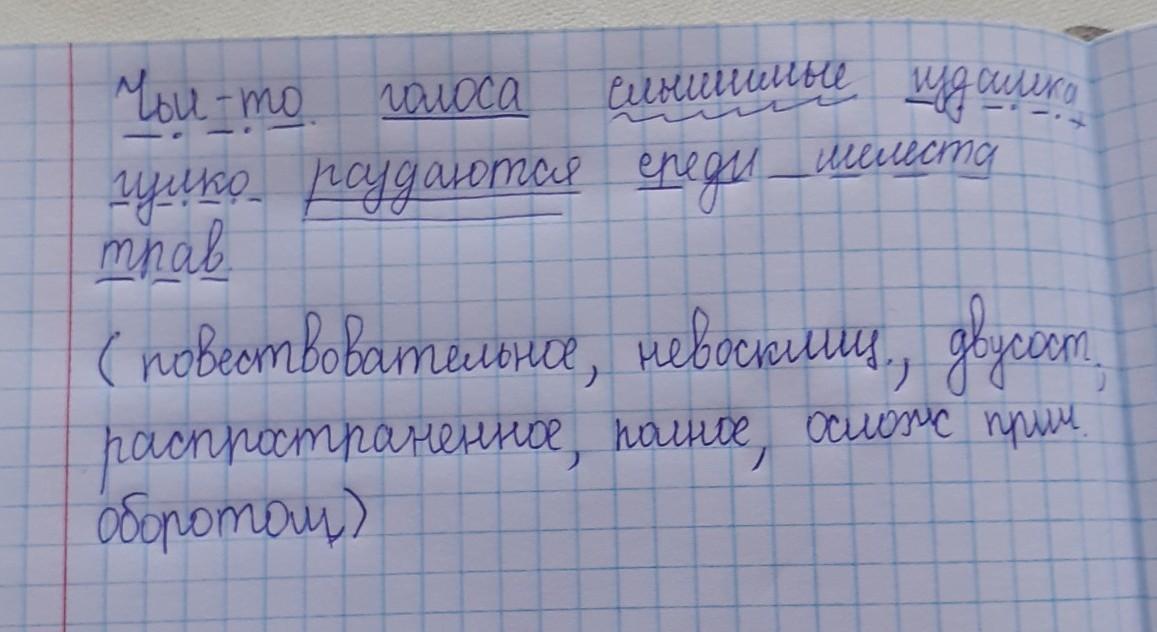 Чьи-то голоса слышимые издалека
гулко раздаются среди шелеста
трав
(повествовательное, невосклиц., двусост.,
распространенное, полное, осложс прич.
оборотом)